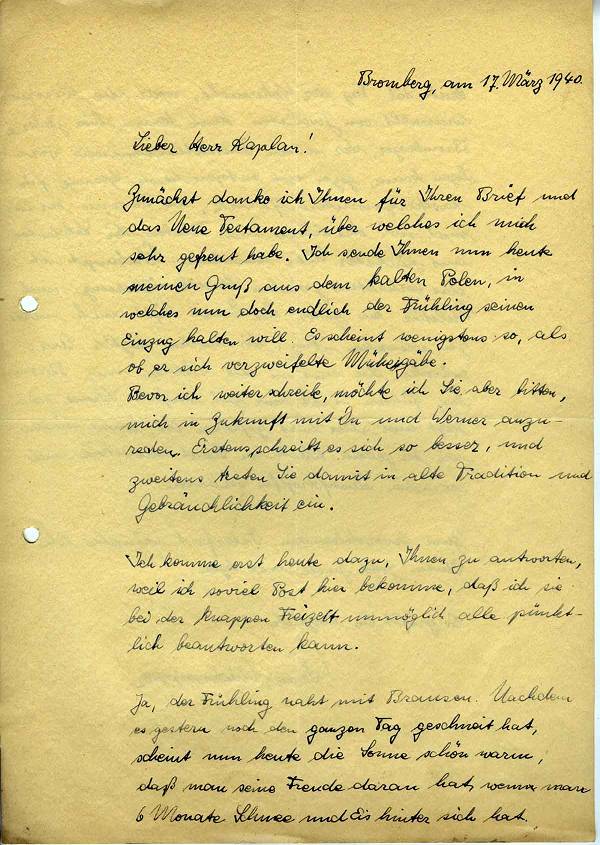 Bromberg, am 17. März 1940.
Lieber Herr Kaplan!
Zunächst danke ich Ihnen für Ihren Brief und
das Neue Testament, über welches ich mich
sehr gefreut habe. Ich sende Ihnen nun heute
meinen Gruß aus dem kalten Polen, in
welches nun doch endlich der Frühling seinen
Einzug halten will. Es scheint wenigstens so, als
ob er sich verzweifelte Mühe gäbe.
Bevor ich weiter schreibe, möchte ich Sie aber bitten,
mich in Zukunft mit Du und Werner anzu-
reden. Erstens schreibt es sich so besser, und
zweitens treten Sie damit in alte Tradition und
Gebräuchlichkeit ein.
Ich komme erst heute dazu, Ihnen zu antworten,
weil ich soviel Post hier bekomme, daß ich sie
bei der knappen Freizeit unmöglich alle pünkt-
lich beantworten kann.
Ja, der Frühling naht mit Brausen. Nachdem
es gestern noch den ganzen Tag geschneit hat,
scheint nun heute die Sonne schön warm,
daß man seine Freude daran hat, wenn man
6 Monate Schnee und Eis hinter sich hat.